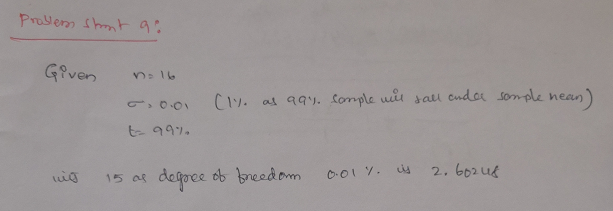 Problem stmnt 9:
Given n=16
σ, 0.01 (1%. as 99%. sample will fall under sample mean)
t= 99%.
with 15 as degree of freedom 0.01 %. is 2.60248